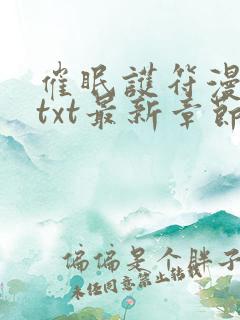 催眠護符漫
txt最新章節
偏偏是个胖子
未经同意禁止转载